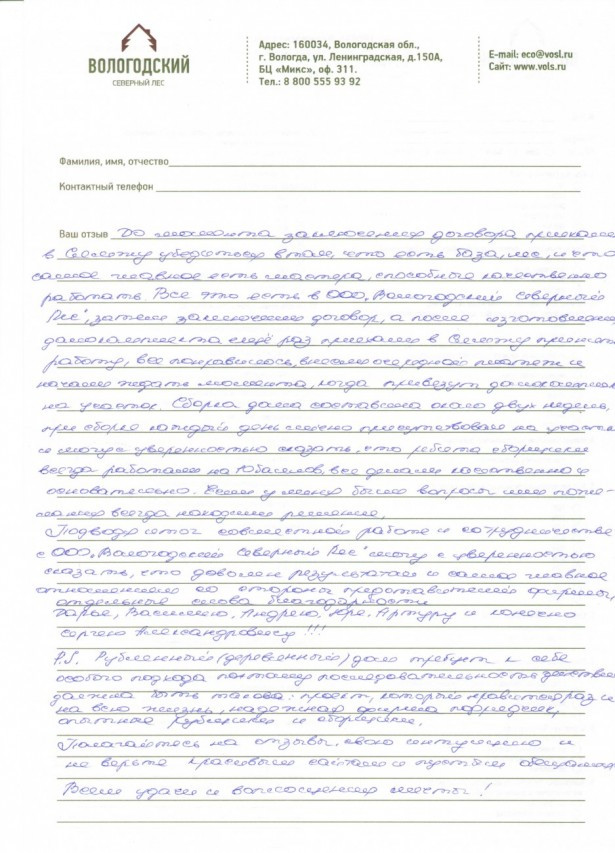 ВОЛОГОДСКИЙ
СЕВЕРНЫЙ ЛЕС
Адрес: 160034, Вологодская обл.,
г. Вологда, ул. Ленинградская, д.150А,
БЦ «Микс», оф. 311.
Тел.: 8 800 555 93 92
E-mail: eco@vosl.ru
Сайт: www.vols.ru
Фамилия, имя, отчество
Контактный телефон
Ваш отзыв До момента заключения договора приехали
в убедиться в том, что есть база, лес, и что
самое главное есть мастера, способные качественно
работать. Все это есть в ООО „Вологодский Северный
Лес", затем заключили договор, а после изготовления
домокомплекта ещё раз приехали в принять
работу, все понравилось, внесли очередной платеж и
начали ждать момента, когда привезут домокомплект
на участок. Сборка дома составила около двух недель,
при сборке каждый день лично присутствовал на участке
и могу с уверенностью сказать, что ребята сборщики
всегда работали на все делали качественно и
основательно. Если у меня были вопросы или поже-
лания всегда находили решение.
Подводя итог совместной работе и сотрудничестве
с ООО „Вологодский Северный Лес" могу с уверенностью
сказать, что доволен результатом и самое главное
отношением со стороны представителей фирмы,
отдельные слова благодарности
Дарье, Василию, Андрею, Артуру и конечно
Сергею Александровичу!!!
P.S. Рубленный (деревянный) дом требует к себе
особого подхода поэтому последовательность действий
должна быть такова: проект, который нравится раз и
на всю жизнь, надежная фирма подрядчик,
опытные рубщики и сборщики.
Полагайтесь на отзывы, свою интуицию и
не верьте красивым сайтам и пустым обещаниям
Всем удачи и воплощения мечты!